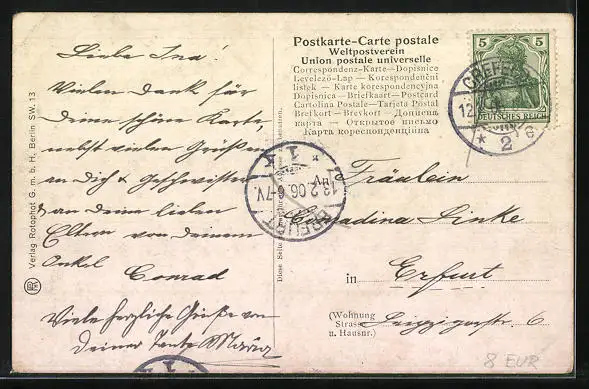 Liebe Ina!
Vielen Dank für
Deine schöne Karte,
nebst vielen Grüßen
an Dich & Geschwister
an Deine lieben
Eltern von Deinem
Onkel
Conrad
Viele herzliche Grüße von
Deiner Tante Maria
Verlag Rotophot G. m. b. H, Berlin SW. 13
Postkarte-Carte postale
Weltpostverein
Union postale universelle
Correspondenz-Karte—Dopisnice
Levelező-Lap — Korespondenční
lístek — Karte korespondencyjna
Dopisnica — Briefkaart—Postcard
Cartolina Postale—Tarjeta Postal
Brefkort — Brevkort — Дописна
карта — Открытое письмо
Карта кореспонденційна
5 5
DEUTSCHES REICH
CREFELD
12.2.
* 2
ERFURT
13.2.06.6-7V.
* 1 *
Diese Seite
Fräulein
Conradina Linke
in
Erfurt
(Wohnung
Strasse Leipzigerstr. 6
u. Hausnr.)
8 EUR
* 1 *